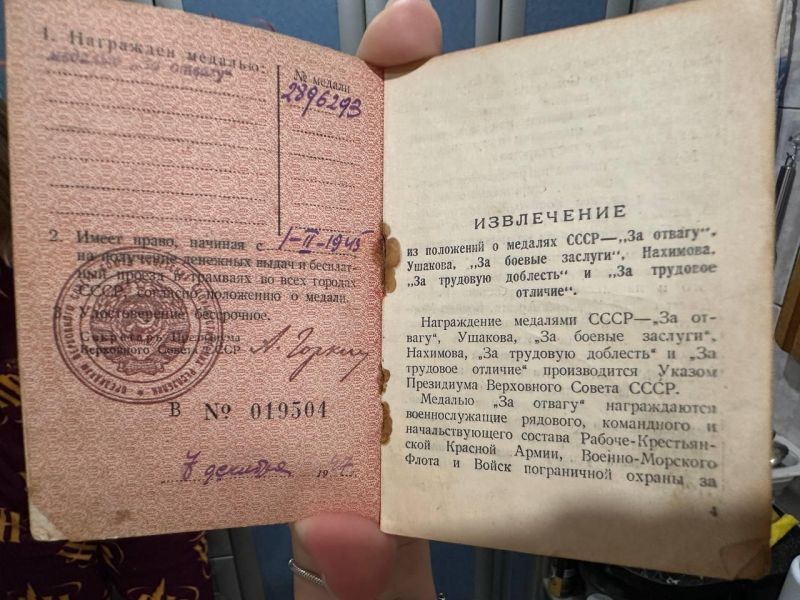 1. Награжден медалью:
медалью „За отвагу"
№ медали
2896293
2. Имеет право, начиная с 1-II-1945
на получение денежных выдач и бесплат-
ный проезд в трамваях во всех городах
СССР, согласно положению о медали.
3. Удостоверение бессрочное.
Секретарь Президиума
Верховного Совета СССР
А. Горкин
В № 019504
7 декабря 1947
ИЗВЛЕЧЕНИЕ
из положений о медалях СССР—„За отвагу",
Ушакова, „За боевые заслуги", Нахимова,
„За трудовую доблесть" и „За трудовое
отличие".
Награждение медалями СССР—„За от-
вагу", Ушакова, „За боевые заслуги",
Нахимова, „За трудовую доблесть" и „За
трудовое отличие" производится Указом
Президиума Верховного Совета СССР.
Медалью „За отвагу" награждаются
военнослужащие рядового, командного и
начальствующего состава Рабоче-Крестьян-
ской Красной Армии, Военно-Морского
Флота и Войск пограничной охраны за
4